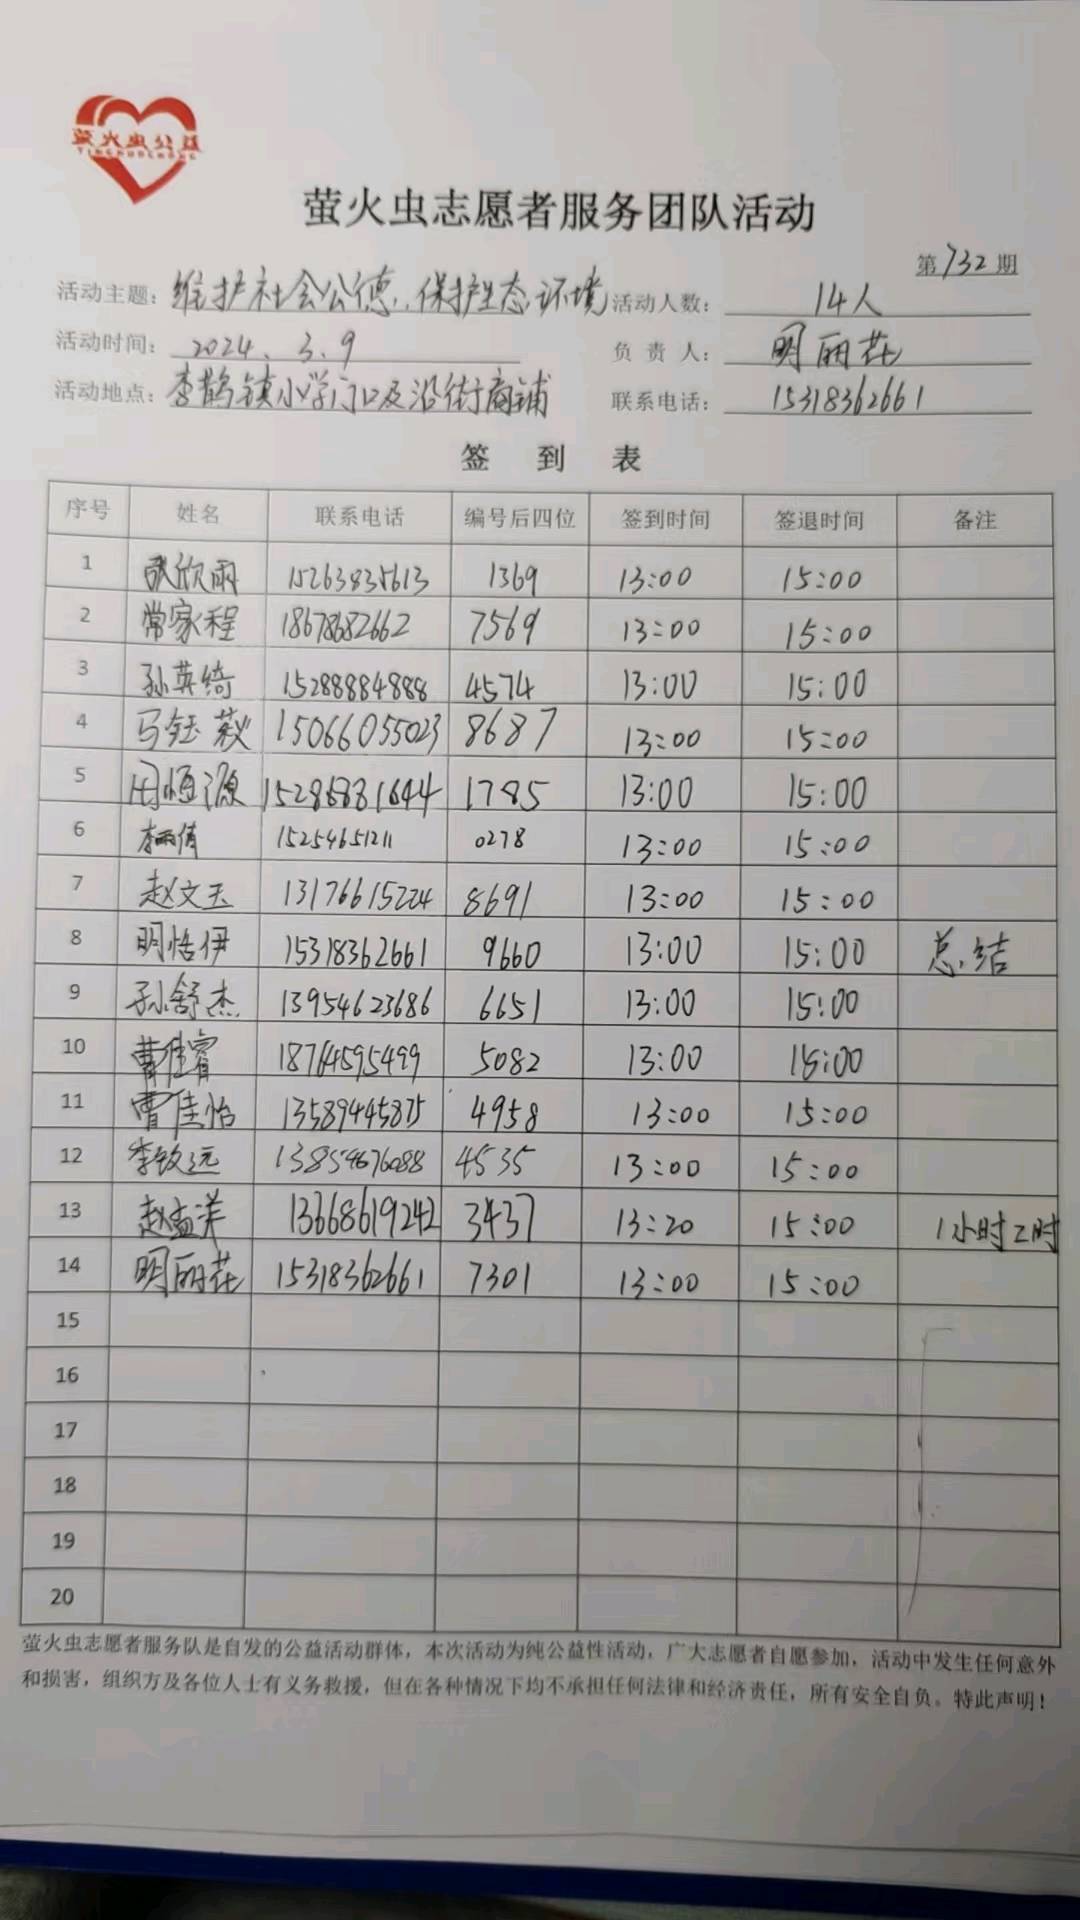 萤火虫公益
YINGHUOCHONG
萤火虫志愿者服务团队活动
第732期
活动主题：维护社会公德、保护生态环境 活动人数：14人
活动时间：2024.3.9 负责人：明丽花
活动地点：李鹊镇小学门口及沿街商铺 联系电话：15318362661
签到表
序号 姓名 联系电话 编号后四位 签到时间 签退时间 备注
1 张欣雨 15263835613 1369 13:00 15:00
2 常家程 18678682662 7569 13:00 15:00
3 孙英绮 15288884888 4574 13:00 15:00
4 马钰 15066055023 8687 13:00 15:00
5 田恒源 15286831644 1785 13:00 15:00
6 李雨倩 15254651211 0278 13:00 15:00
7 赵文玉 13176615224 8691 13:00 15:00
8 明恬伊 15318362661 9660 13:00 15:00 总结
9 孙舒杰 13954623686 6651 13:00 15:00
10 曹佳睿 18764595499 5082 13:00 15:00
11 曹佳怡 13589445875 4958 13:00 15:00
12 李致远 13854676088 4535 13:00 15:00
13 赵孟洋 13668619242 3437 13:20 15:00 1小时2时
14 明丽花 15318362661 7301 13:00 15:00
15
16
17
18
19
20
萤火虫志愿者服务队是自发的公益活动群体，本次活动为纯公益性活动，广大志愿者自愿参加，活动中发生任何意外
和损害，组织方及各位人士有义务救援，但在各种情况下均不承担任何法律和经济责任，所有安全自负。特此声明！